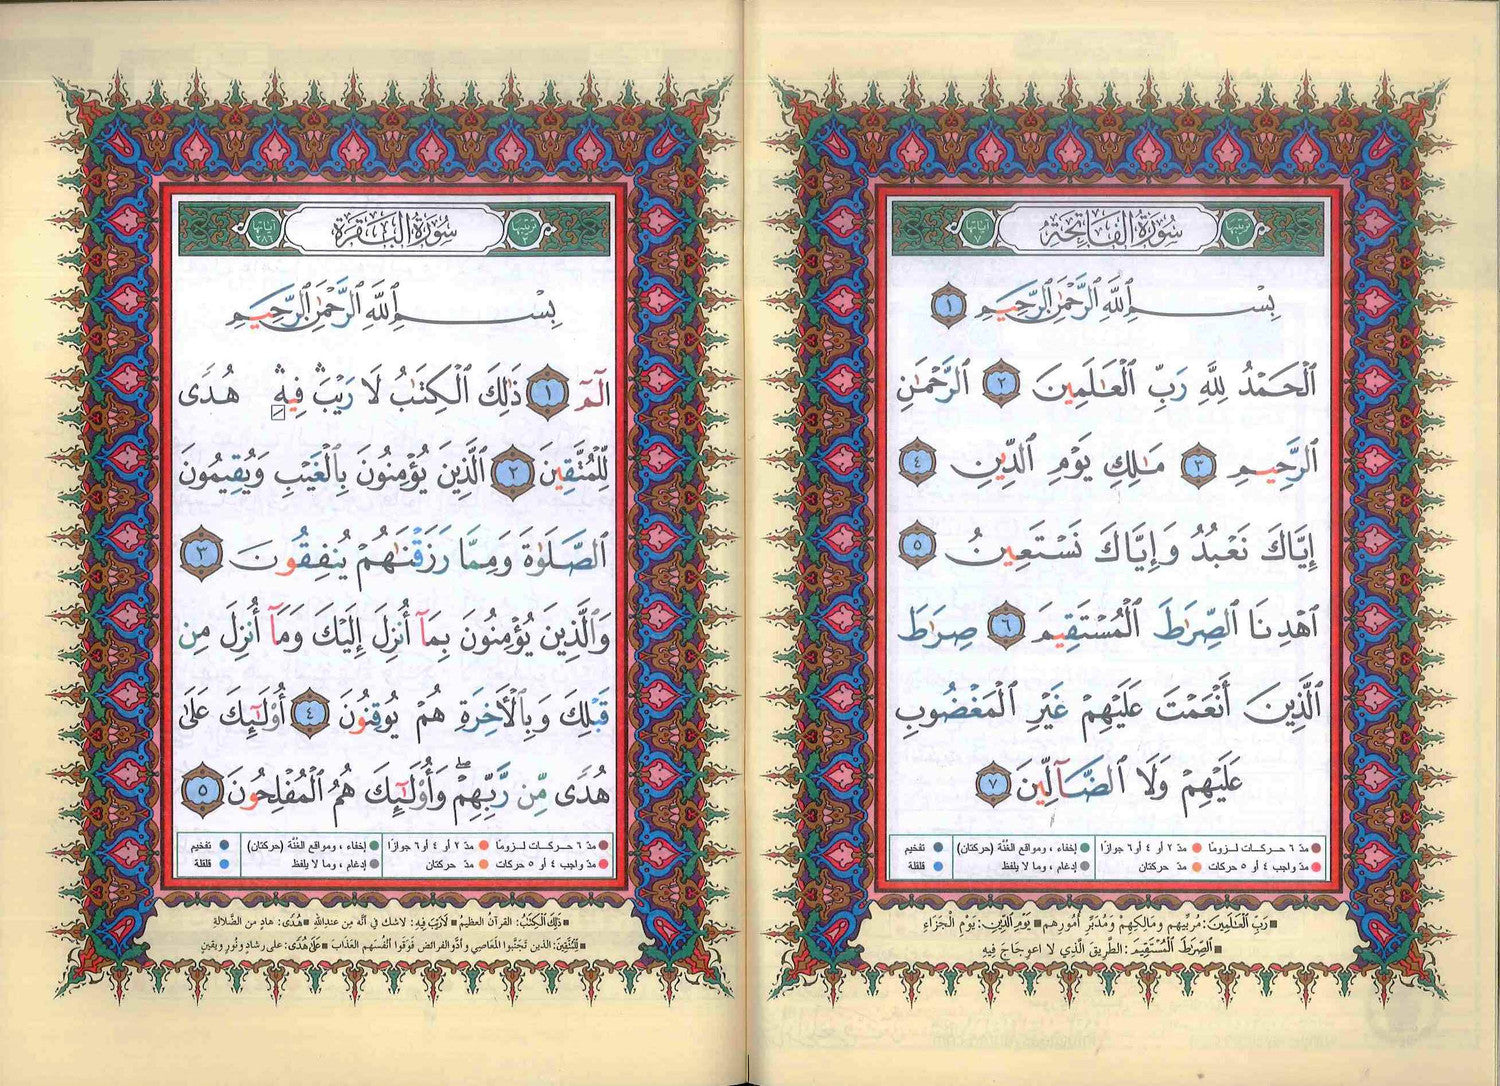 ترتيبها ١ سُورَةُ الفَاتِحَةِ آياتها ٧
بِسْمِ ٱللَّهِ ٱلرَّحْمَٰنِ ٱلرَّحِيمِ ١
ٱلْحَمْدُ لِلَّهِ رَبِّ ٱلْعَٰلَمِينَ ٢ ٱلرَّحْمَٰنِ
ٱلرَّحِيمِ ٣ مَٰلِكِ يَوْمِ ٱلدِّينِ ٤
إِيَّاكَ نَعْبُدُ وَإِيَّاكَ نَسْتَعِينُ ٥
ٱهْدِنَا ٱلصِّرَٰطَ ٱلْمُسْتَقِيمَ ٦ صِرَٰطَ
ٱلَّذِينَ أَنْعَمْتَ عَلَيْهِمْ غَيْرِ ٱلْمَغْضُوبِ
عَلَيْهِمْ وَلَا ٱلضَّآلِّينَ ٧
مدّ ٦ حركات لزومًا مدّ ٢ أو ٤ أو ٦ جوازًا إخفاء، ومواقع الغُنَّة (حركتان) تفخيم
مدّ واجب ٤ أو ٥ حركات مدّ حركتان إدغام، وما لا يلفظ قلقلة
رَبِّ الْعَٰلَمِينَ: مُربِّيهم وَمَالِكِهِمْ وَمُدَبِّرِ أُمُورِهم يَوْمِ الدِّينِ: يَوْمِ الْجَزَاءِ
ٱلصِّرَٰطَ ٱلْمُسْتَقِيمَ: الطَّرِيقَ الَّذِي لا اعوِجَاجَ فِيهِ
ترتيبها ٢ سُورَةُ البَقَرَةِ آياتها ٢٨٦
بِسْمِ ٱللَّهِ ٱلرَّحْمَٰنِ ٱلرَّحِيمِ
الٓمٓ ١ ذَٰلِكَ ٱلْكِتَٰبُ لَا رَيْبَ ۛ فِيهِ ۛ هُدًى
لِّلْمُتَّقِينَ ٢ ٱلَّذِينَ يُؤْمِنُونَ بِٱلْغَيْبِ وَيُقِيمُونَ
ٱلصَّلَوٰةَ وَمِمَّا رَزَقْنَٰهُمْ يُنفِقُونَ ٣
وَٱلَّذِينَ يُؤْمِنُونَ بِمَآ أُنزِلَ إِلَيْكَ وَمَآ أُنزِلَ مِن
قَبْلِكَ وَبِٱلْءَاخِرَةِ هُمْ يُوقِنُونَ ٤ أُو۟لَٰٓئِكَ عَلَىٰ
هُدًى مِّن رَّبِّهِمْ ۖ وَأُو۟لَٰٓئِكَ هُمُ ٱلْمُفْلِحُونَ ٥
مدّ ٦ حركات لزومًا مدّ ٢ أو ٤ أو ٦ جوازًا إخفاء، ومواقع الغُنَّة (حركتان) تفخيم
مدّ واجب ٤ أو ٥ حركات مدّ حركتان إدغام، وما لا يلفظ قلقلة
ذَٰلِكَ الْكِتَٰبُ: القرآن العظيم لَا رَيْبَ فِيهِ: لاشك في أنَّه مِن عندالله هُدًى: هادٍ من الضَّلالةِ
لِلْمُتَّقِينَ: الذين تَجَنَّبوا المعَاصِي وأدَّوا الفرائضَ فَوَقَوا أنْفُسَهم العَذَابَ عَلَىٰ هُدًى: على رشادٍ ونُورٍ ويَقينٍ